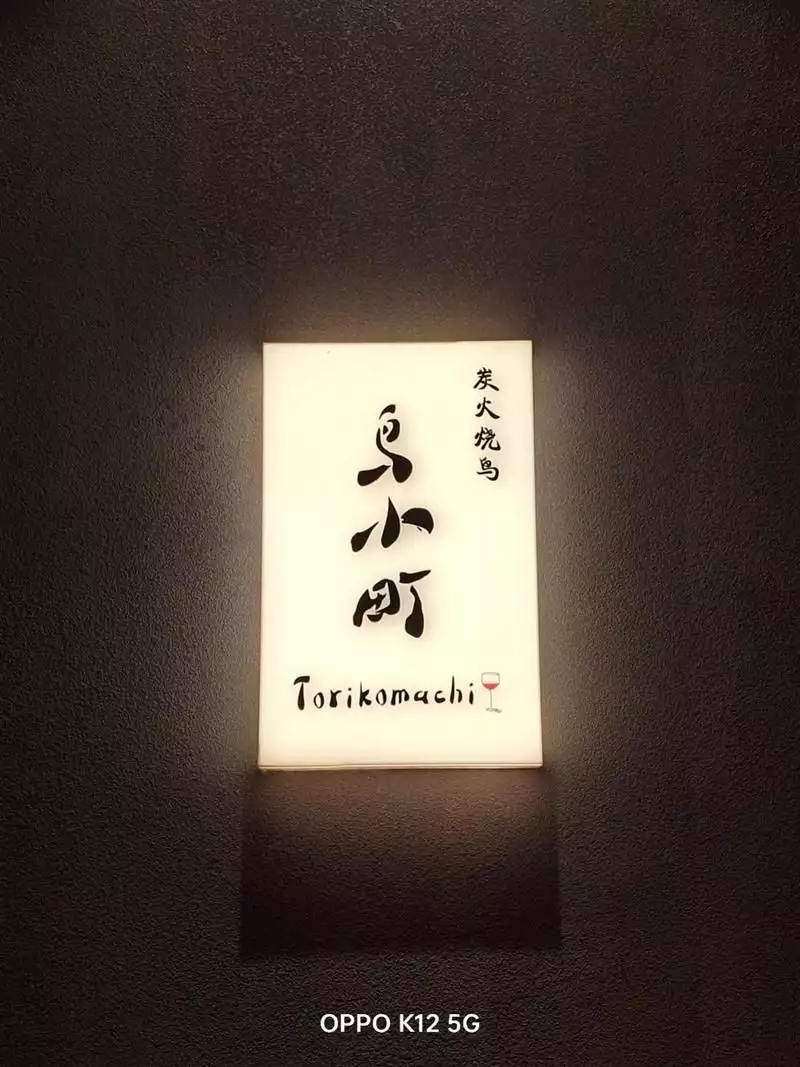 炭火烧鸟
鸟小町
Torikomachi
OPPO K12 5G